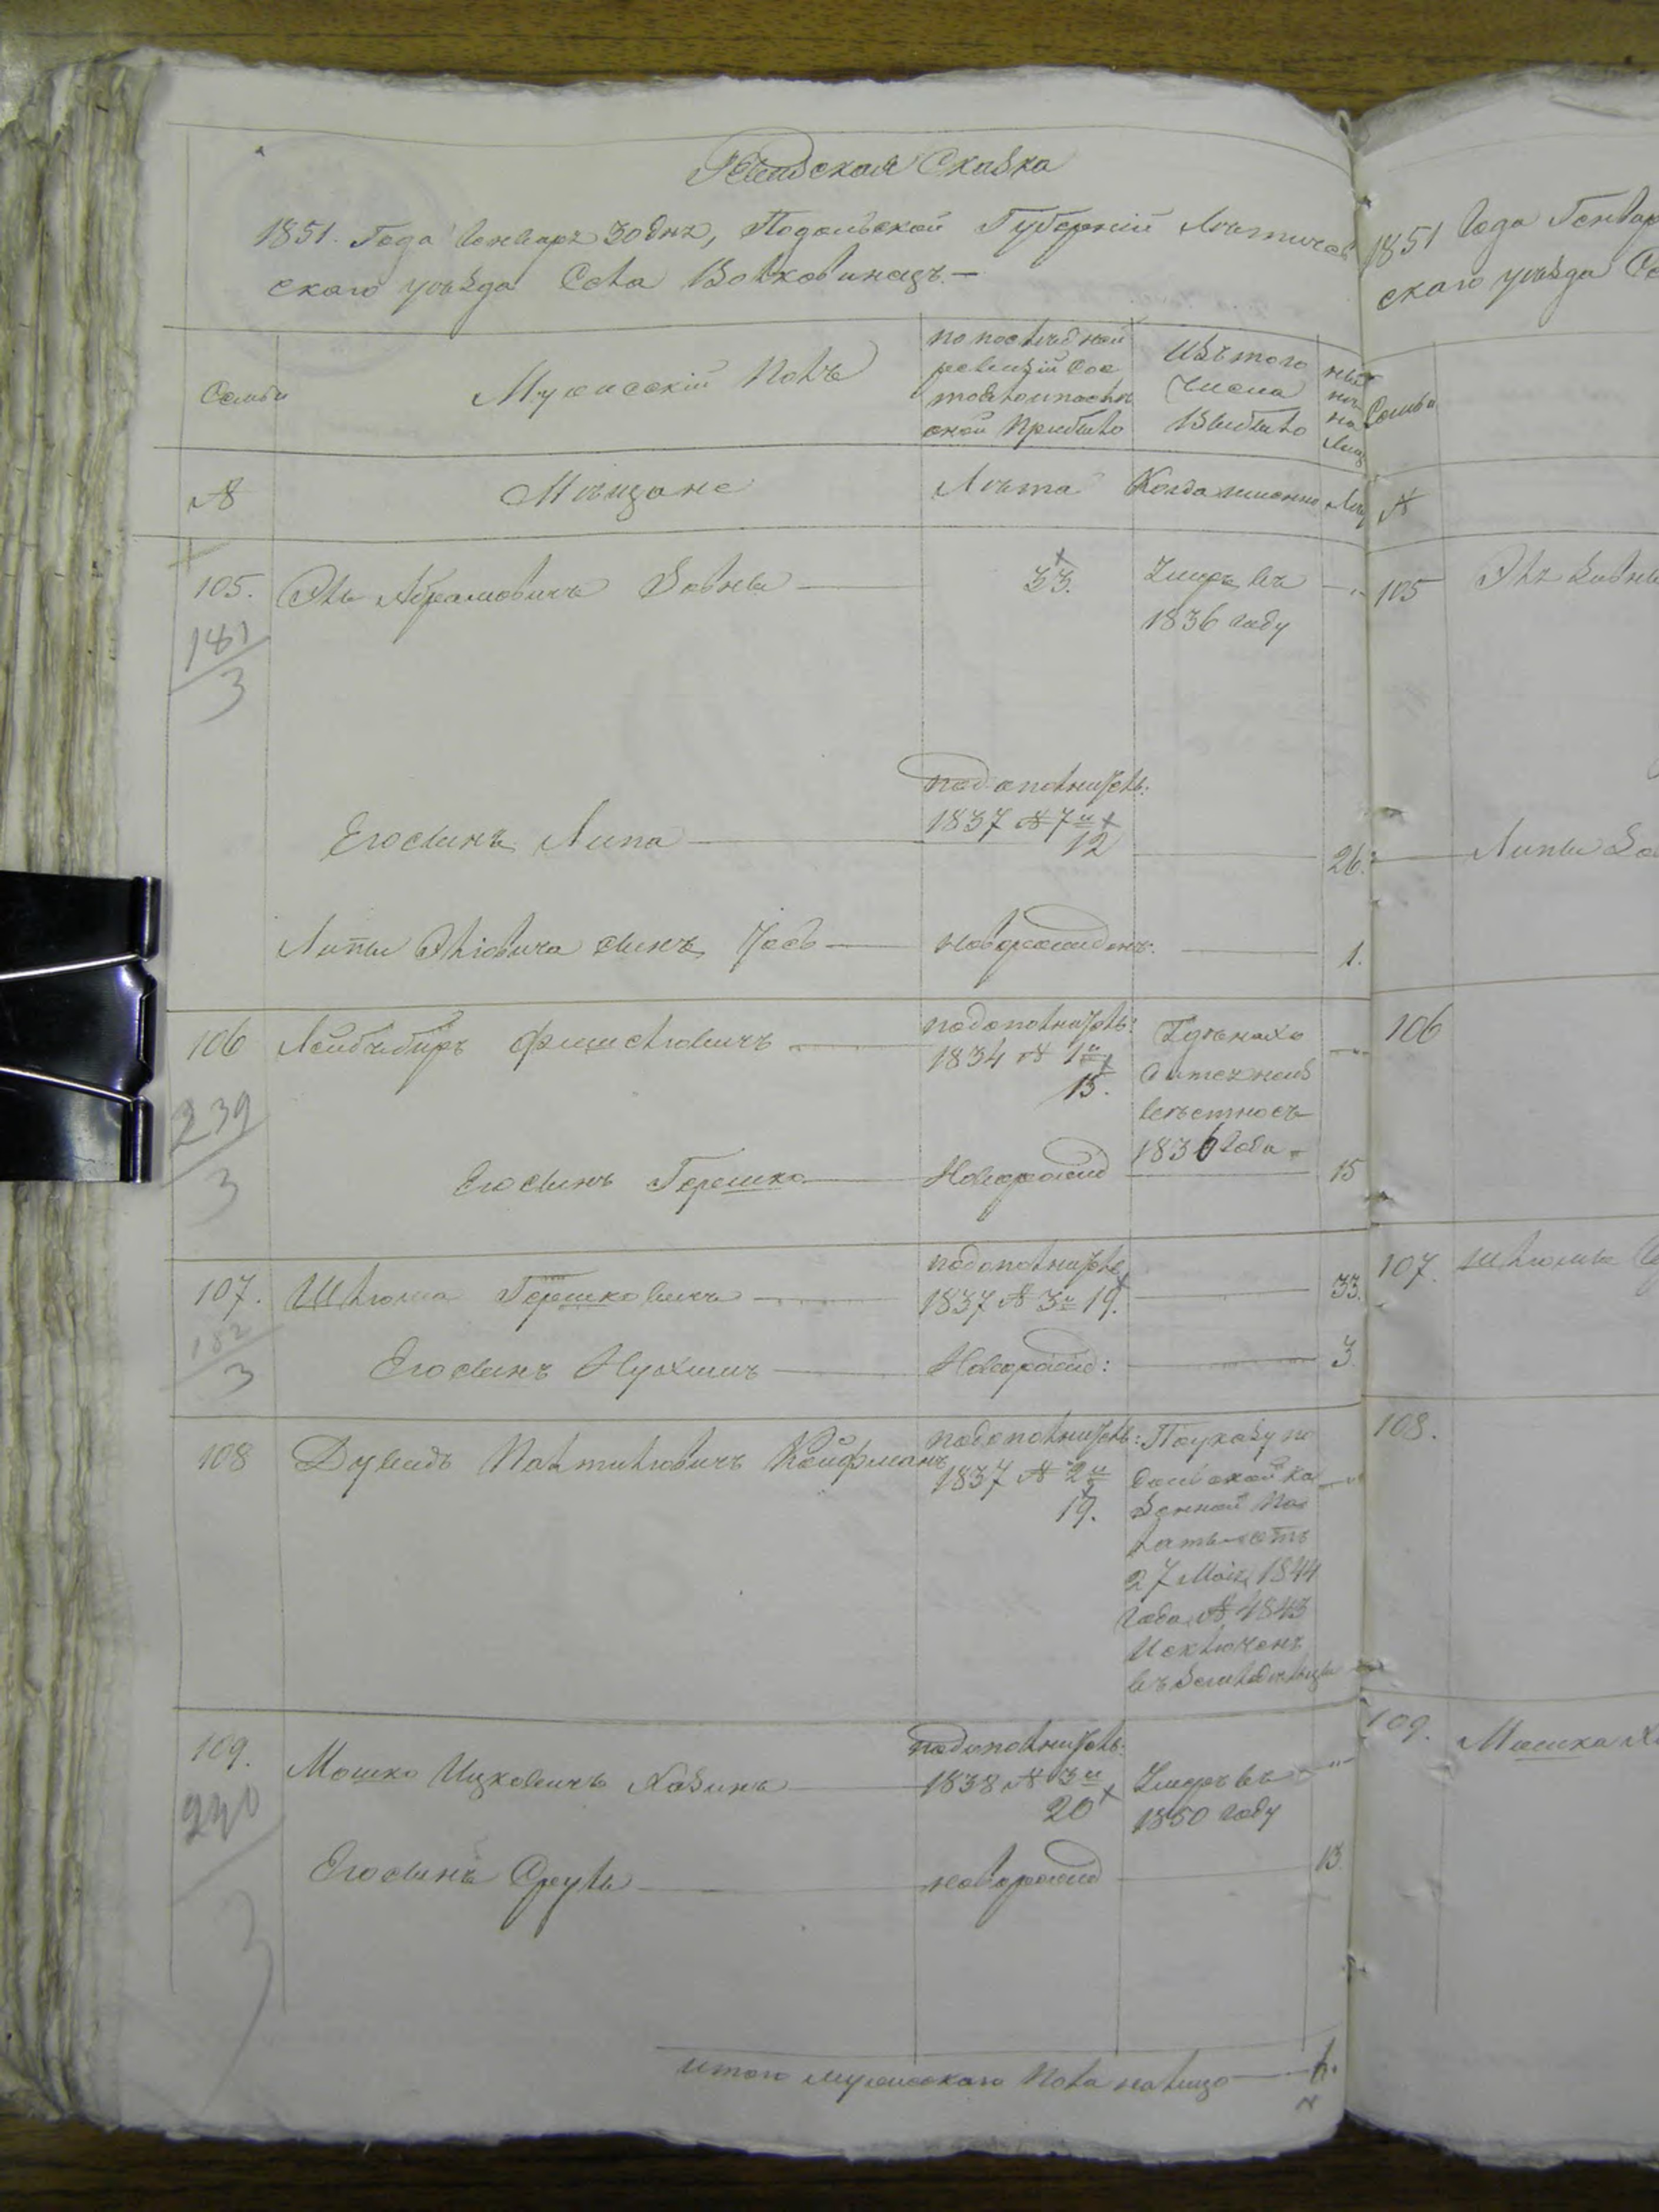 Ревизская Сказка
1851. Года Генваря 30 дня, Подольской Губерний Летичев
скаго уезда Села Волковинецъ.—
Семьи
Мужескій Полъ
по последней
ревизій сос
тояло и после
оной прибыло
Изъ того
числа
Выбыло
ныне
на
лицо
№
Мещане
Лета
Когда именно
Лет
105. Эль Абрамовичъ Вовны — 33. Умре въ
1836 году
181
3
подополнител:
1837 № 7и
Его сынъ Липа — 12 — 26.
Липы Эліовича сынъ Іось — новорожденъ: — 1.
106 Лейбъ Биръ Фишелювичъ — подополнител:
1834 № 1и
15.
Где нахо
дится неиз
вестносъ
1836 года
239
3
Его сынъ Гершко — Новорожд — 15
107. Шлюма Гершковичъ — подополнител
1837 № 3и 19. — 33.
182
3
Его сынъ Нухимъ — Новорожд: — 3.
108 Дувидъ Палтилювичъ Койфманъ
подополнител:
1837 № 2и
19.
По указу по
дольской Ка
зенной Па
латы отъ
27 Маія 1844
года № 4843
Исключенъ
въ земледельцы
109. Мошко Ицковичъ Хазинъ — подополнител:
1838 № 3и
20
Умеръ въ
1850 году
240
3
Его сынъ Сруль — новорожд — 13.
итого мужескаго пола налицо — 6.
1851 Года Генвар
скаго уезда Се
Семьи
№
105 Эля Вовны
Липы Во
106
107. Шлюмы
108.
109. Мошка Х